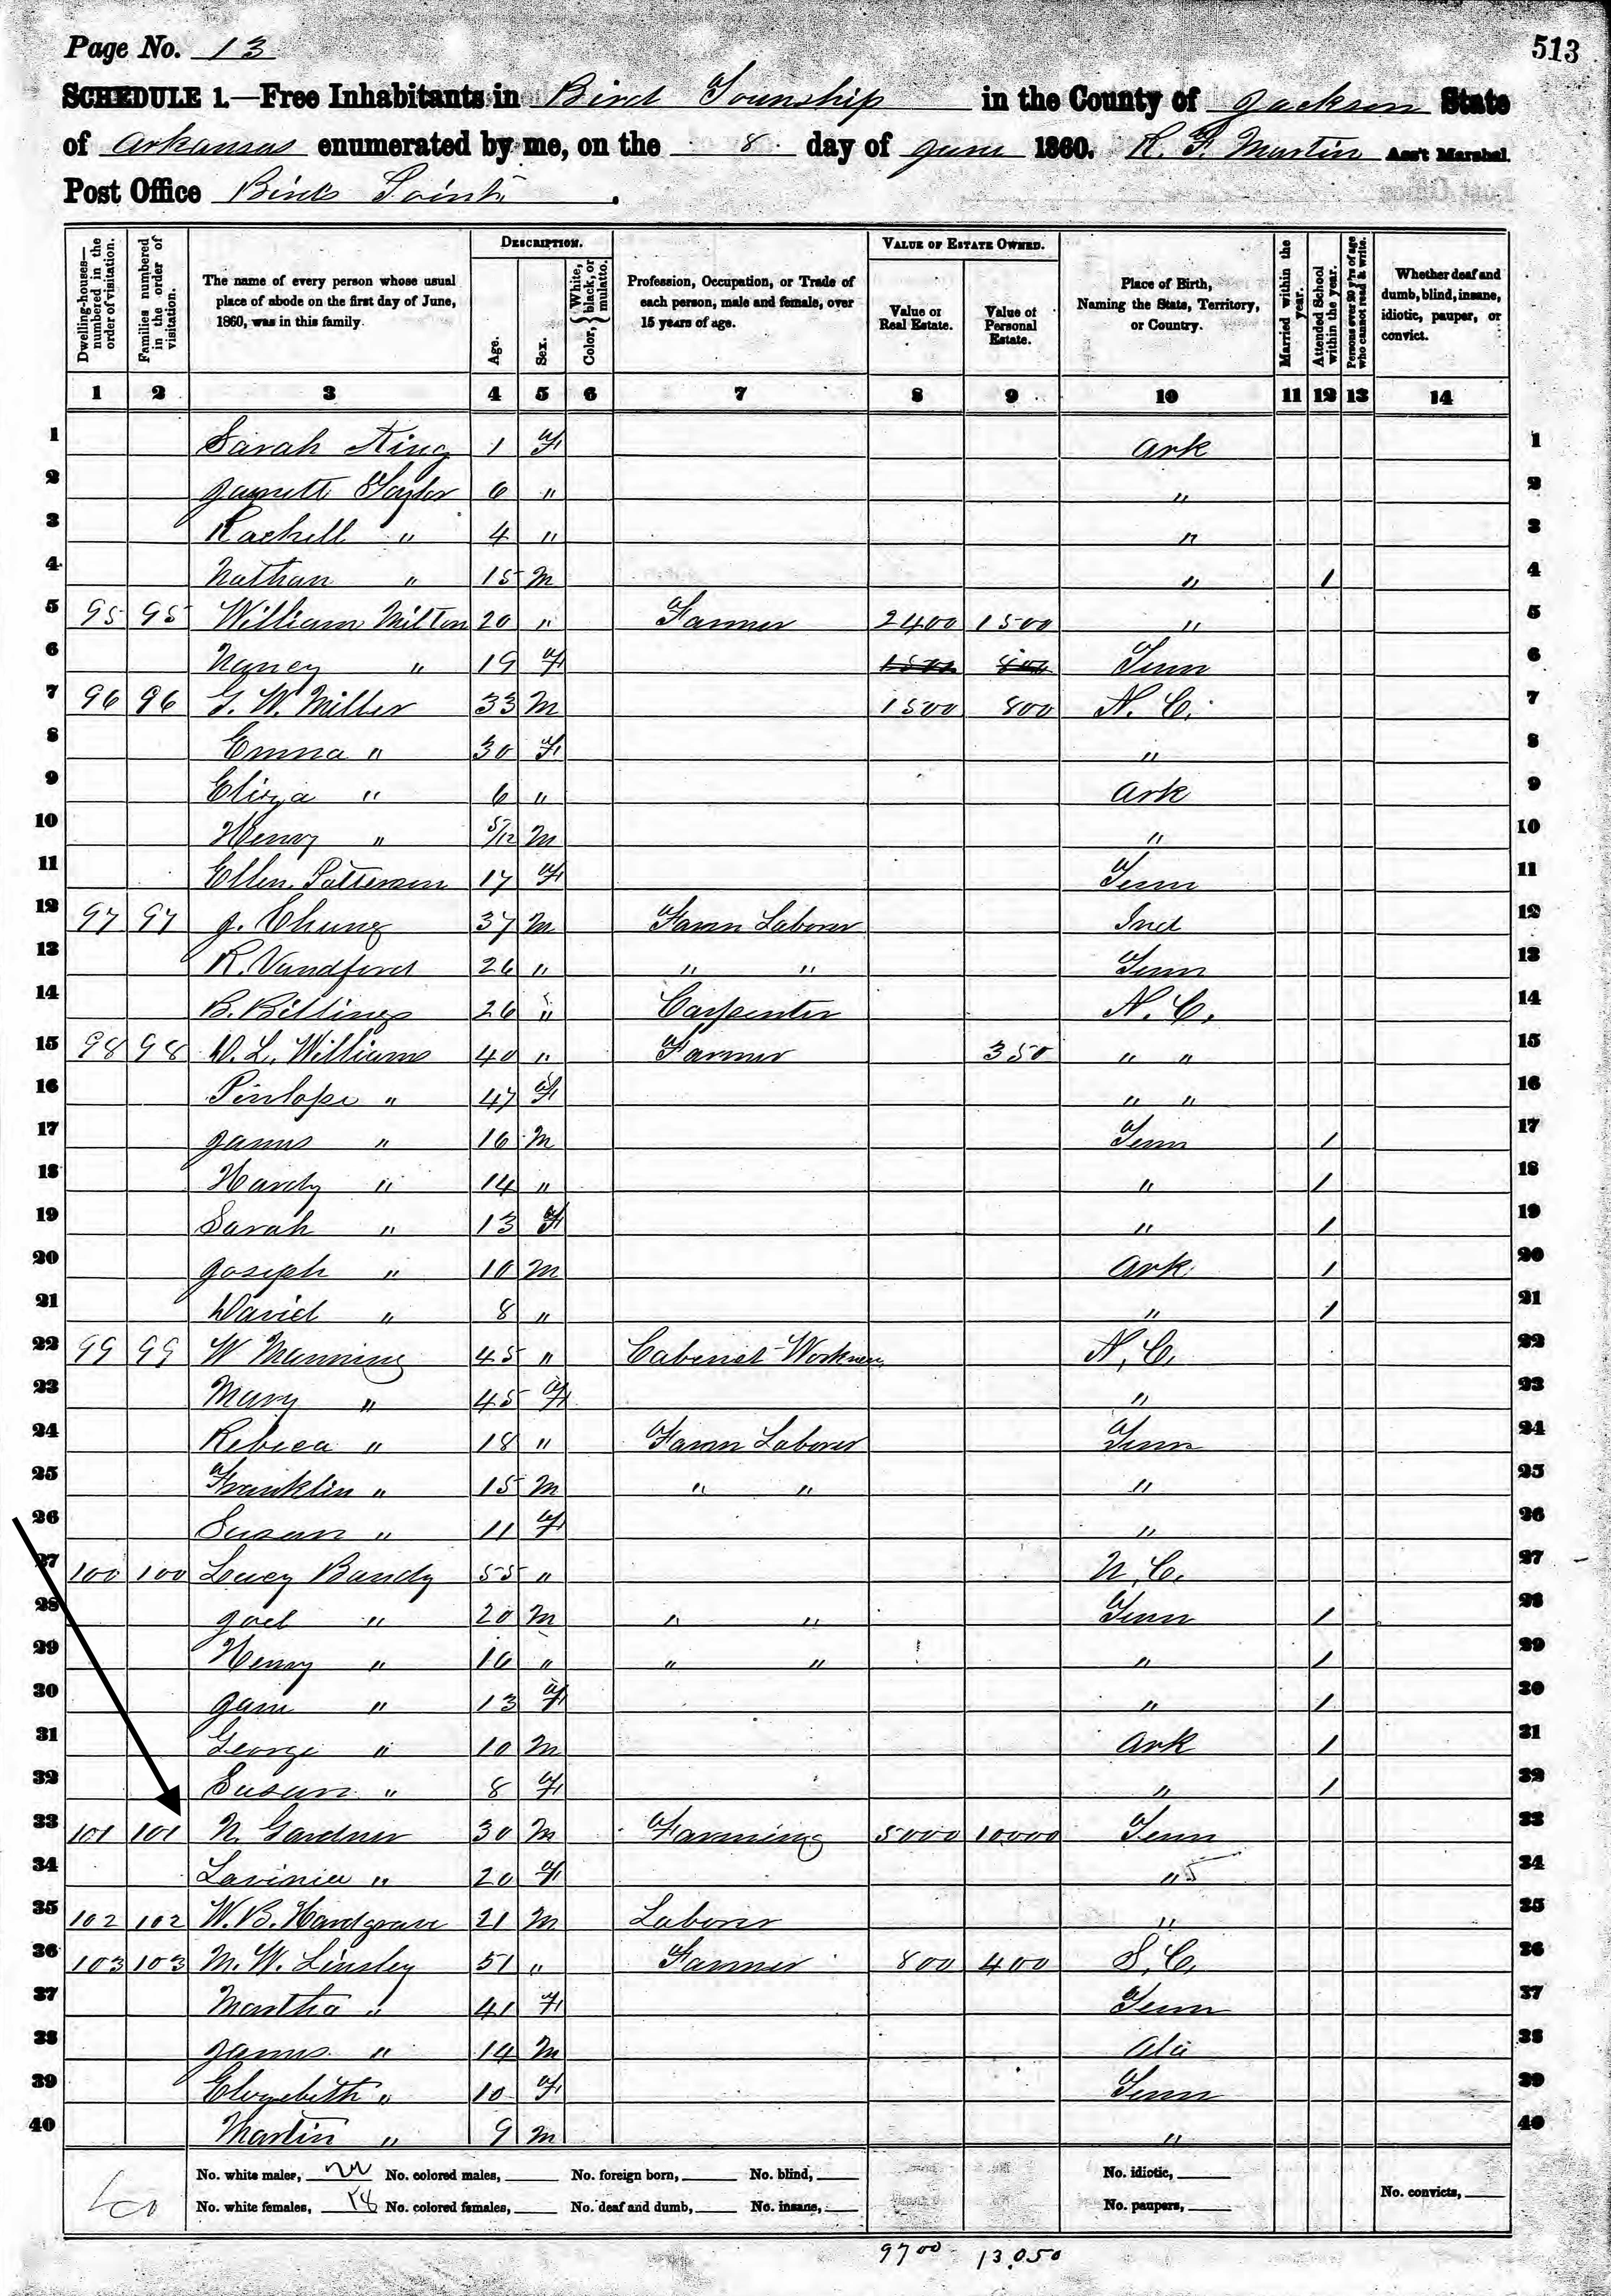 Page No. 13
513
SCHEDULE 1.—Free Inhabitants in Bird Township in the County of Jackson State
of Arkansas enumerated by me, on the 8 day of June 1860. R. F. Martin Ass't Marshal.
Post Office Birds Point .
Dwelling-houses—numbered in the order of visitation.
Families numbered in the order of visitation.
The name of every person whose usual place of abode on the first day of June, 1860, was in this family.
DESCRIPTION.
Age.
Sex.
Color, { White, black, or mulatto.
Profession, Occupation, or Trade of each person, male and female, over 15 years of age.
VALUE OF ESTATE OWNED.
Value of Real Estate.
Value of Personal Estate.
Place of Birth, Naming the State, Territory, or Country.
Married within the year.
Attended School within the year.
Persons over 20 y'rs of age who cannot read & write.
Whether deaf and dumb, blind, insane, idiotic, pauper, or convict.
1 2 3 4 5 6 7 8 9 10 11 12 13 14
1 Sarah King 1 F Ark 1
2 Taylor 6 " " 2
3 Rachell " 4 " " 3
4 Nathan " 15 M " / 4
5 95 95 William Milton 20 " Farmer 2400 1500 " 5
6 Nancy " 19 F 1500 800 Tenn 6
7 96 96 G. W. Miller 33 M 1500 800 N. C. 7
8 Emma " 30 F " 8
9 Eliza " 6 " Ark 9
10 Henry " 5/12 M " 10
11 Ellen Patterson 17 F Tenn 11
12 97 97 J. Chung 37 M Farm Laborer Ind 12
13 R. Vandford 26 " " " Tenn 13
14 B. Billings 26 " Carpenter N. C. 14
15 98 98 W. L. Williams 40 " Farmer 350 " " 15
16 Pinlope " 47 F " " 16
17 James " 16 M Tenn / 17
18 Hardy " 14 " " / 18
19 Sarah " 13 F " / 19
20 Joseph " 10 M Ark / 20
21 David " 8 " " / 21
22 99 99 W Manning 45 " Cabinet Workman N. C. 22
23 Mary " 45 F " 23
24 Rebeca " 18 " Farm Laborer Tenn 24
25 Franklin " 15 M " " " 25
26 Susan " 11 F " 26
27 100 100 Lucey Bundy 55 " N. C. 27
28 Joel " 20 M " " Tenn / 28
29 Henry " 16 " " " " / 29
30 Jane " 13 F " / 30
31 George " 10 M Ark / 31
32 Susan " 8 F " / 32
33 101 101 N. Gardner 30 M Farming 5000 10000 Tenn 33
34 Lavinia " 20 F " 5 34
35 102 102 W. B. Hardgrave 21 M Laborer " 35
36 103 103 M. W. Linsley 51 " Farmer 800 400 S. C. 36
37 Martha " 41 F Tenn 37
38 James " 14 M Ala 38
39 Elizebeth " 10 F Tenn 39
40 Martin " 9 M " 40
40
No. white males, 22 No. colored males, No. foreign born, No. blind, No. idiotic,
No. white females, 18 No. colored females, No. deaf and dumb, No. insane, No. paupers, No. convicts,
9700 13,050